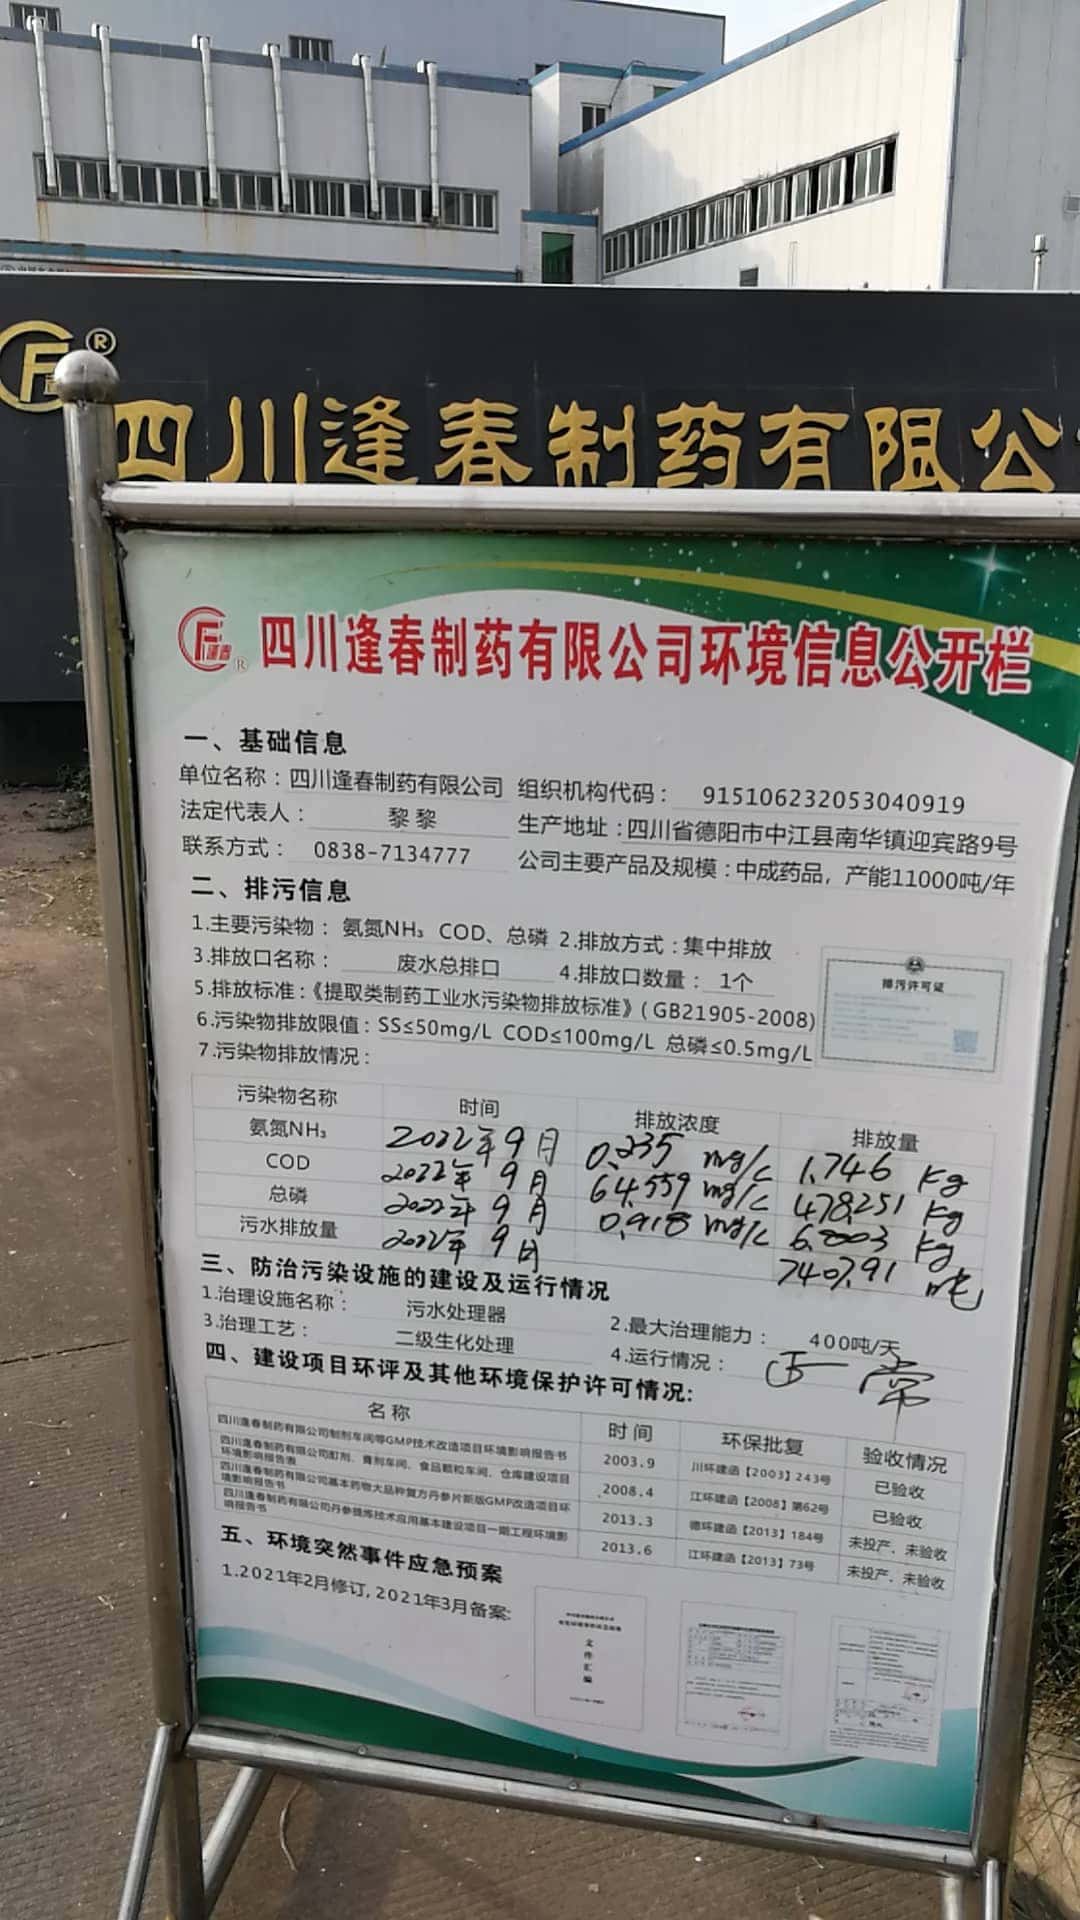 四川逢春制药有限公
四川逢春制药有限公司环境信息公开栏
一、基础信息
单位名称：四川逢春制药有限公司 组织机构代码： 915106232053040919
法定代表人： 黎黎 生产地址：四川省德阳市中江县南华镇迎宾路9号
联系方式： 0838-7134777 公司主要产品及规模：中成药品，产能11000吨/年
二、排污信息
1.主要污染物： 氨氮NH₃ COD、总磷 2.排放方式：集中排放
3.排放口名称： 废水总排口 4.排放口数量： 1个
5.排放标准：《提取类制药工业水污染物排放标准》( GB21905-2008)
6.污染物排放限值：SS≤50mg/L COD≤100mg/L 总磷≤0.5mg/L
排污许可证
7.污染物排放情况：
污染物名称 时间 排放浓度 排放量
氨氮NH₃ 2022年9月 0.235 mg/L 1.746 Kg
COD 2022年9月 64.559 mg/L 478.251 Kg
总磷 2022年9月 0.918 mg/L Kg
污水排放量 2022年9月 7407.91 吨
三、防治污染设施的建设及运行情况
1.治理设施名称： 污水处理器 2.最大治理能力： 400吨/天
3.治理工艺： 二级生化处理 4.运行情况： 正常
四、建设项目环评及其他环境保护许可情况:
名 称 时 间 环保批复 验收情况
四川逢春制药有限公司制剂车间等GMP技术改造项目环境影响报告书 2003.9 川环建函【2003】243号 已验收
四川逢春制药有限公司酊剂、膏剂车间、食品颗粒车间、仓库建设项目
环境影响报告表 2008.4 江环建函【2008】第62号 已验收
四川逢春制药有限公司基本药物大品种复方丹参片新版GMP改造项目环
境影响报告书 2013.3 德环建函【2013】184号 未投产、未验收
四川逢春制药有限公司丹参提炼技术应用基本建设项目一期工程环境影
响报告书 2013.6 江环建函【2013】73号 未投产、未验收
五、环境突然事件应急预案
1.2021年2月修订, 2021年3月备案:
文件汇编